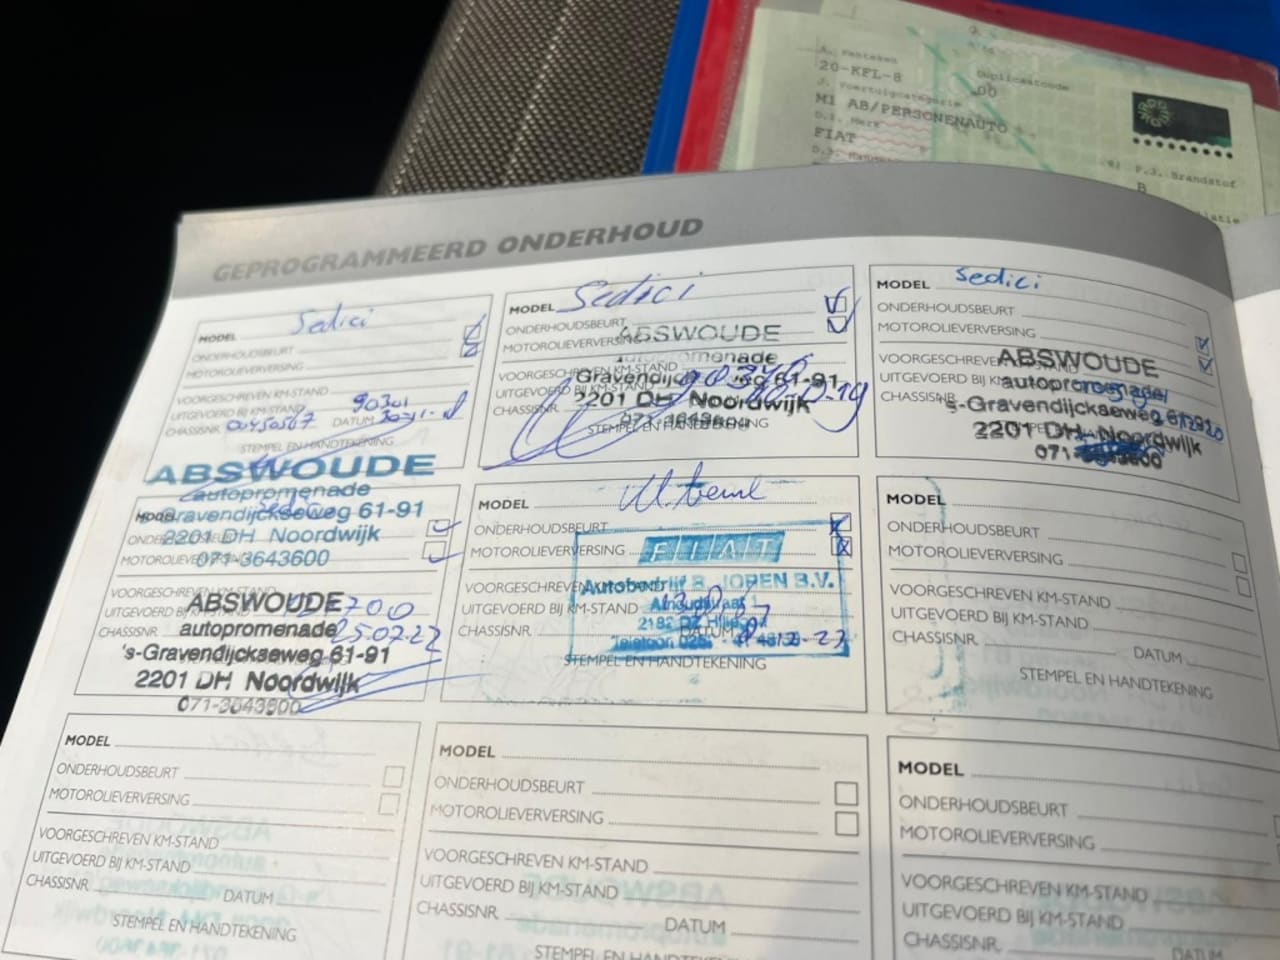 A. Kenteken
20-KFL-8
J. Voertuigcategorie
M1 AB/PERSONENAUTO
D.1. Merk
FIAT
Duplicaatcode
00
P.3. Brandstof
B
GEPROGRAMMEERD ONDERHOUD
MODEL Sedici
ONDERHOUDSBEURT
MOTOROLIEVERVERSING
VOORGESCHREVEN KM-STAND
UITGEVOERD BIJ KM-STAND 90301
CHASSISNR. DATUM
STEMPEL EN HANDTEKENING
ABSWOUDE
autopromenade
Gravendijckseweg 61-91
2201 DH Noordwijk
071-3643600
MODEL Sedici
ONDERHOUDSBEURT
MOTOROLIEVERVERSING
VOORGESCHREVEN KM-STAND
UITGEVOERD BIJ KM-STAND
CHASSISNR.
STEMPEL EN HANDTEKENING
ABSWOUDE
autopromenade
Gravendijckseweg 61-91
2201 DH Noordwijk
071-3643600
MODEL Sedici
ONDERHOUDSBEURT
MOTOROLIEVERVERSING
VOORGESCHREVEN KM-STAND
UITGEVOERD BIJ KM-STAND
CHASSISNR.
ABSWOUDE
autopromenade
's-Gravendijckseweg 61-91
2201 DH Noordwijk
MODEL
MOTOROLIEVERVERSING
VOORGESCHREVEN KM-STAND
UITGEVOERD BIJ KM-STAND
CHASSISNR.
25.02-22
ABSWOUDE
autopromenade
's-Gravendijckseweg 61-91
2201 DH Noordwijk
071-3643600
MODEL
ONDERHOUDSBEURT
MOTOROLIEVERVERSING
VOORGESCHREVEN KM-STAND
UITGEVOERD BIJ KM-STAND
CHASSISNR. DATUM
STEMPEL EN HANDTEKENING
FIAT
Autobedrijf B. JOREN B.V.
MODEL
ONDERHOUDSBEURT
MOTOROLIEVERVERSING
VOORGESCHREVEN KM-STAND
UITGEVOERD BIJ KM-STAND
CHASSISNR. DATUM
STEMPEL EN HANDTEKENING
MODEL
ONDERHOUDSBEURT
MOTOROLIEVERVERSING
VOORGESCHREVEN KM-STAND
UITGEVOERD BIJ KM-STAND
CHASSISNR. DATUM
STEMPEL EN HANDTEKENING
MODEL
ONDERHOUDSBEURT
MOTOROLIEVERVERSING
VOORGESCHREVEN KM-STAND
UITGEVOERD BIJ KM-STAND
CHASSISNR. DATUM
STEMPEL EN HANDTEKENING
MODEL
ONDERHOUDSBEURT
MOTOROLIEVERVERSING
VOORGESCHREVEN KM-STAND
UITGEVOERD BIJ KM-STAND
CHASSISNR. DATUM